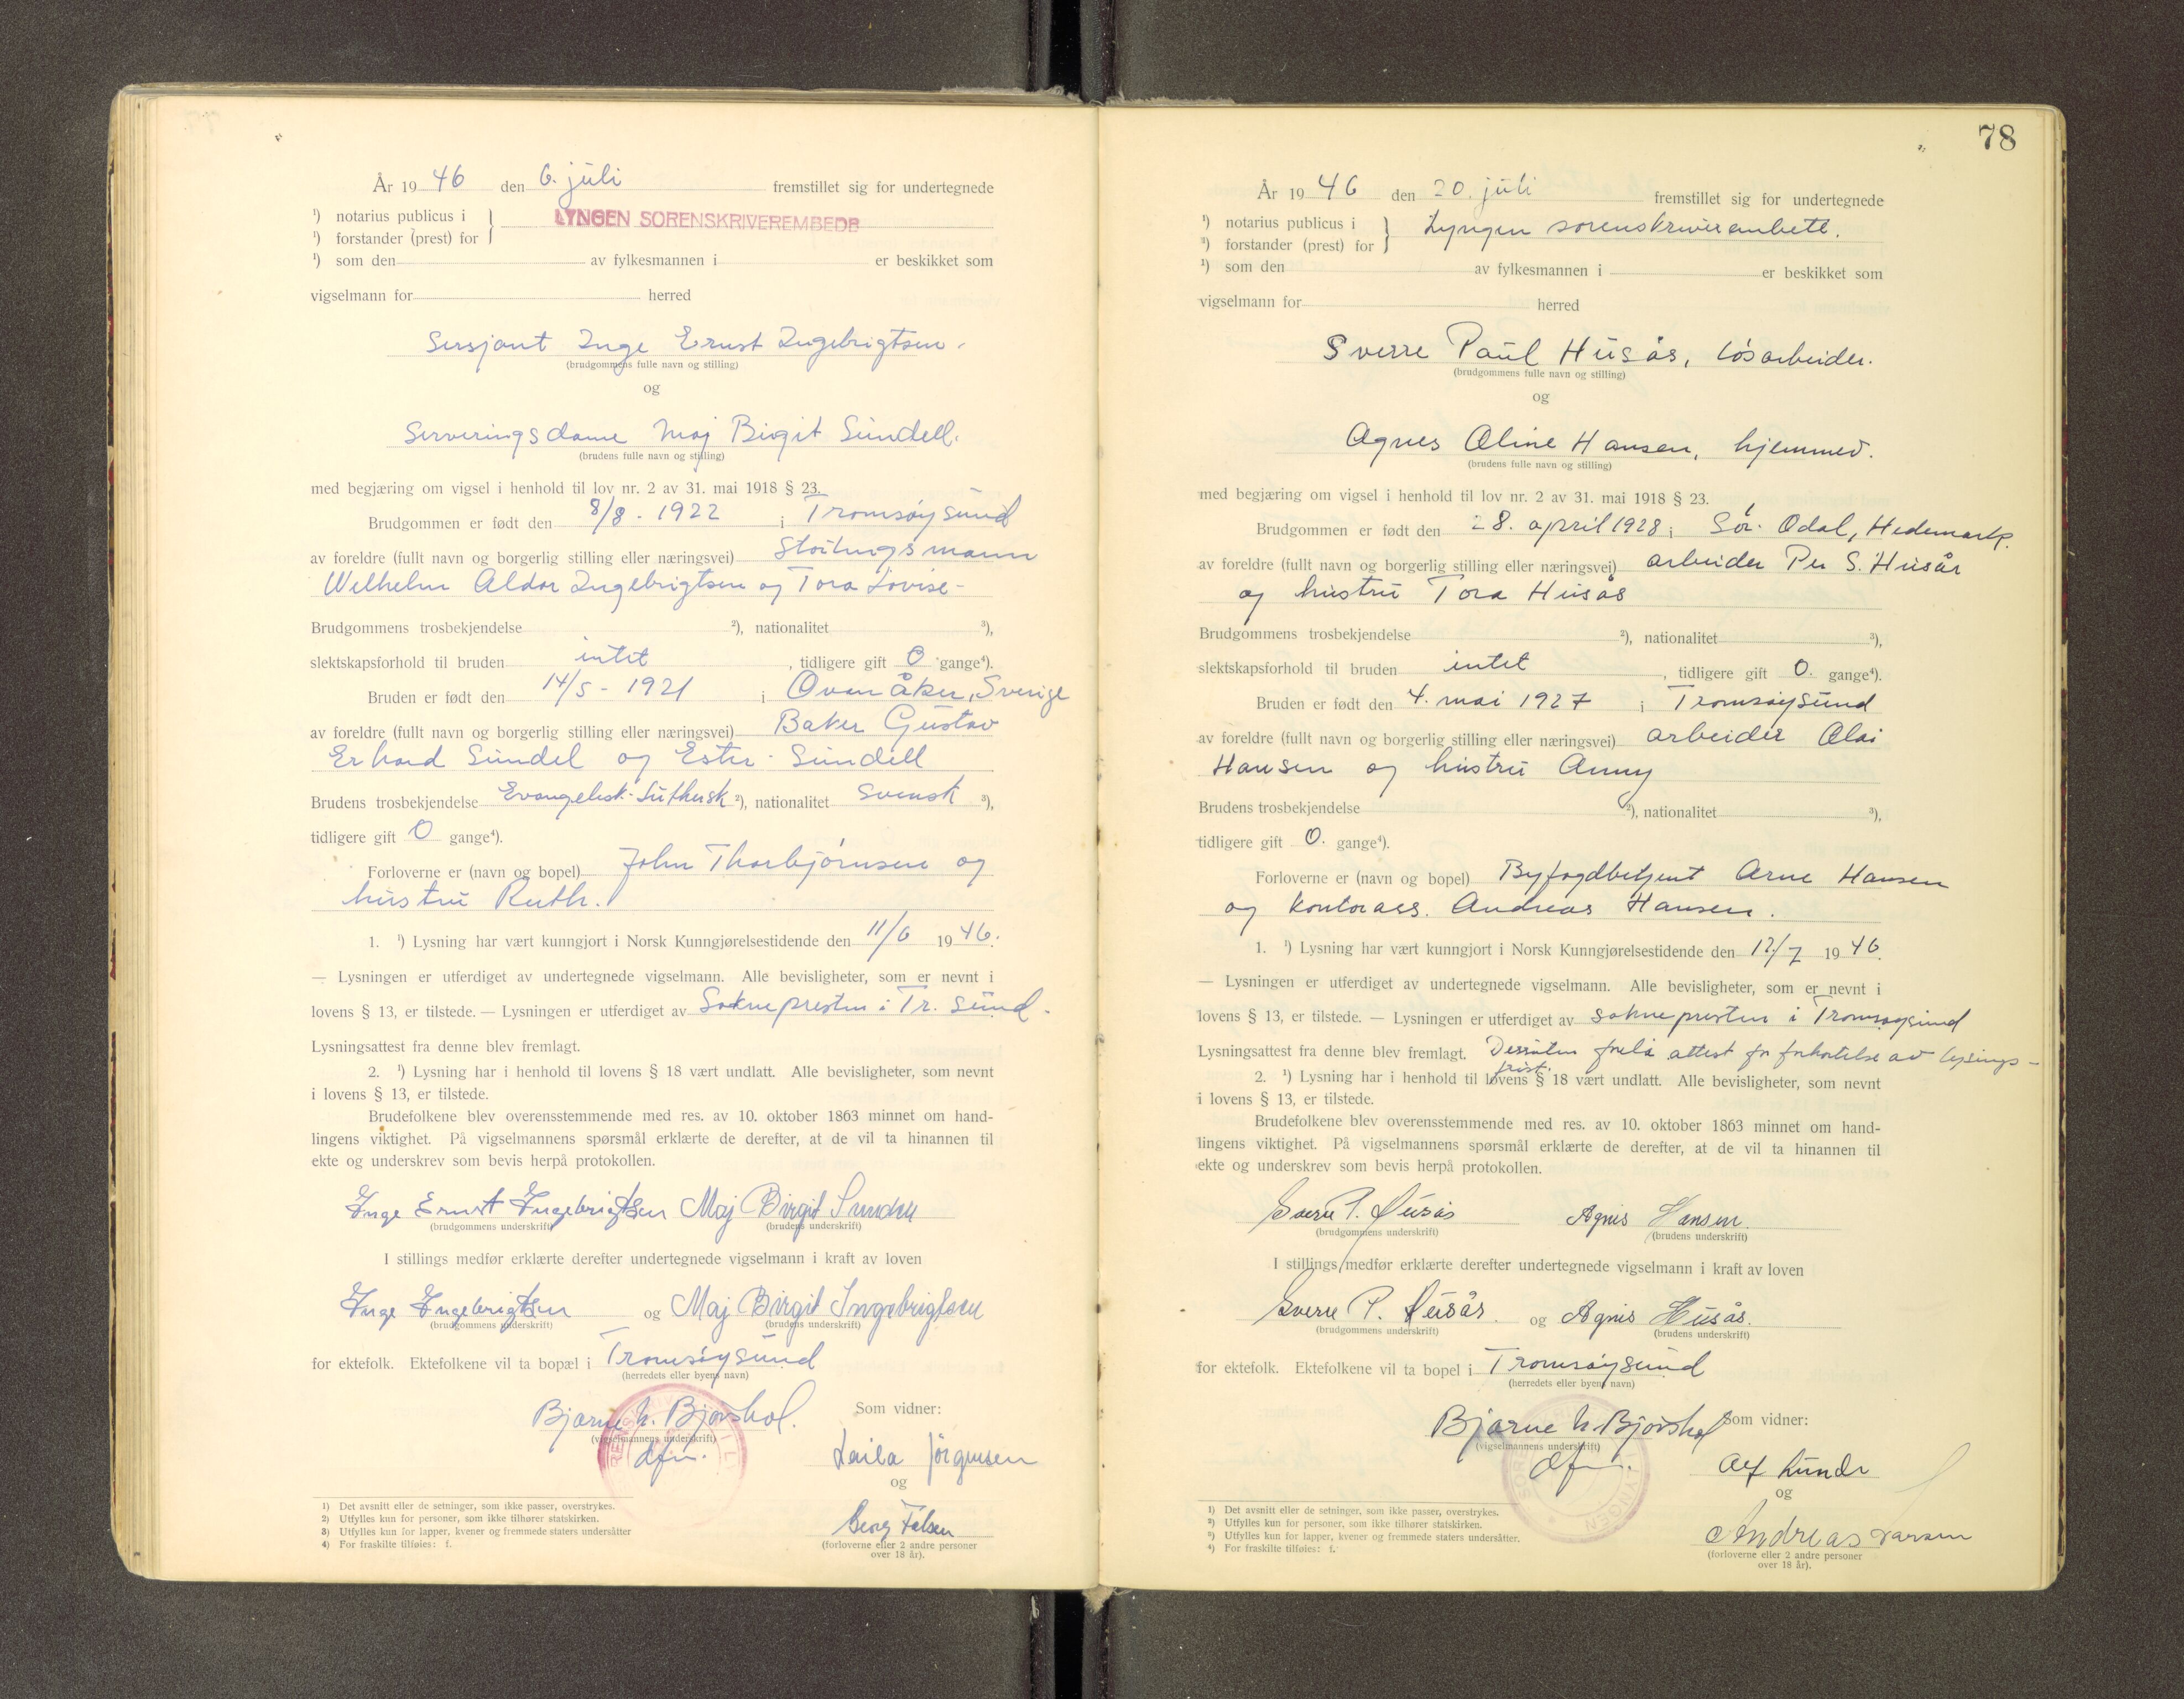 År 1946 den 6. juli fremstillet sig for undertegnede
¹) notarius publicus i
¹) forstander (prest) for
LYNGEN SORENSKRIVEREMBEDE
¹) som den av fylkesmannen i er beskikket som
vigselmann for herred
Sersjant Inge Ernst Ingebrigtsen.
(brudgommens fulle navn og stilling)
og
Serveringsdame Maj Birgit Sundell.
(brudens fulle navn og stilling)
med begjæring om vigsel i henhold til lov nr. 2 av 31. mai 1918 § 23.
Brudgommen er født den 8/8 - 1922 i Tromsøysund
av foreldre (fullt navn og borgerlig stilling eller næringsvei)
Wilhelm Aldor Ingebrigtsen og Tora Lovise -
Brudgommens trosbekjendelse ²), nationalitet ³),
slektskapsforhold til bruden intet , tidligere gift 0 gange⁴).
Bruden er født den 14/5 - 1921 i Ovanåker, Sverige
av foreldre (fullt navn og borgerlig stilling eller næringsvei) Baker Gustav
Erhard Sundel og Ester Sundell
Brudens trosbekjendelse Evangelisk-Luthersk ²), nationalitet svensk ³),
tidligere gift 0 gange⁴).
Forloverne er (navn og bopel) John Thorbjørnsen og
hustru Ruth.
1. ¹) Lysning har vært kunngjort i Norsk Kunngjørelsestidende den 11/6 1946.
— Lysningen er utferdiget av undertegnede vigselmann. Alle bevisligheter, som er nevnt i
lovens § 13, er tilstede. — Lysningen er utferdiget av Soknepresten i Tr. sund.
Lysningsattest fra denne blev fremlagt.
2. ¹) Lysning har i henhold til lovens § 18 vært undlatt. Alle bevisligheter, som nevnt
i lovens § 13, er tilstede.
Brudefolkene blev overensstemmende med res. av 10. oktober 1863 minnet om hand-
lingens viktighet. På vigselmannens spørsmål erklærte de derefter, at de vil ta hinannen til
ekte og underskrev som bevis herpå protokollen.
Inge Ernst Ingebrigtsen Maj Birgit Sundell
(brudgommens underskrift) (brudens underskrift)
I stillings medfør erklærte derefter undertegnede vigselmann i kraft av loven
Inge Ingebrigtsen og Maj Birgit Ingebrigtsen
(brudgommens underskrift) (brudens underskrift)
for ektefolk. Ektefolkene vil ta bopæl i Tromsøysund
(herredets eller byens navn)
Bjarne N. Bjørshol. Som vidner:
(vigselmannens underskrift)
dfm. Laila Jørgensen
og
Georg Falsen
(forloverne eller 2 andre personer
over 18 år).
1) Det avsnitt eller de setninger, som ikke passer, overstrykes.
2) Utfylles kun for personer, som ikke tilhører statskirken.
3) Utfylles kun for lapper, kvener og fremmede staters undersåtter
4) For fraskilte tilføies: f.
78
År 1946 den 20. juli fremstillet sig for undertegnede
¹) notarius publicus i
¹) forstander (prest) for
Lyngen sorenskriverembete.
¹) som den av fylkesmannen i er beskikket som
vigselmann for herred
Sverre Paul Husås, løsarbeider.
(brudgommens fulle navn og stilling)
og
Agnes Oline Hansen, hjemmev.
(brudens fulle navn og stilling)
med begjæring om vigsel i henhold til lov nr. 2 av 31. mai 1918 § 23.
Brudgommen er født den 28. april 1928 i Sør-Odal, Hedemark.
av foreldre (fullt navn og borgerlig stilling eller næringsvei) arbeider Per S. Husås
og hustru Tora Husås
Brudgommens trosbekjendelse ²), nationalitet ³),
slektskapsforhold til bruden intet , tidligere gift 0. gange⁴).
Bruden er født den 4. mai 1927 i Tromsøysund
av foreldre (fullt navn og borgerlig stilling eller næringsvei) arbeider Olai
Hansen og hustru Anny
Brudens trosbekjendelse ²), nationalitet ³),
tidligere gift 0. gange⁴).
Forloverne er (navn og bopel) Byfogdbetjent Arne Hansen
og kontorass. Andreas Hansen.
1. ¹) Lysning har vært kunngjort i Norsk Kunngjørelsestidende den 12/7 1946.
— Lysningen er utferdiget av undertegnede vigselmann. Alle bevisligheter, som er nevnt i
lovens § 13, er tilstede. — Lysningen er utferdiget av soknepresten i Tromsøysund
Lysningsattest fra denne blev fremlagt. Dessuten forelå attest for forkortelse av lysings-
frist.
2. ¹) Lysning har i henhold til lovens § 18 vært undlatt. Alle bevisligheter, som nevnt
i lovens § 13, er tilstede.
Brudefolkene blev overensstemmende med res. av 10. oktober 1863 minnet om hand-
lingens viktighet. På vigselmannens spørsmål erklærte de derefter, at de vil ta hinannen til
ekte og underskrev som bevis herpå protokollen.
Sverre P. Husås Agnis Hansen.
(brudgommens underskrift) (brudens underskrift)
I stillings medfør erklærte derefter undertegnede vigselmann i kraft av loven
Sverre P. Husås. og Agnis Husås.
(brudgommens underskrift) (brudens underskrift)
for ektefolk. Ektefolkene vil ta bopel i Tromsøysund
(herredets eller byens navn)
Bjarne N. Bjørshol Som vidner:
(vigselmannens underskrift)
dfm. Alf Lunde
og
Andreas Larsen
(forloverne eller 2 andre personer
over 18 år).
1) Det avsnitt eller de setninger, som ikke passer, overstrykes.
2) Utfylles kun for personer, som ikke tilhører statskirken.
3) Utfylles kun for lapper, kvener og fremmede staters undersåtter.
4) For fraskilte tilføies: f.